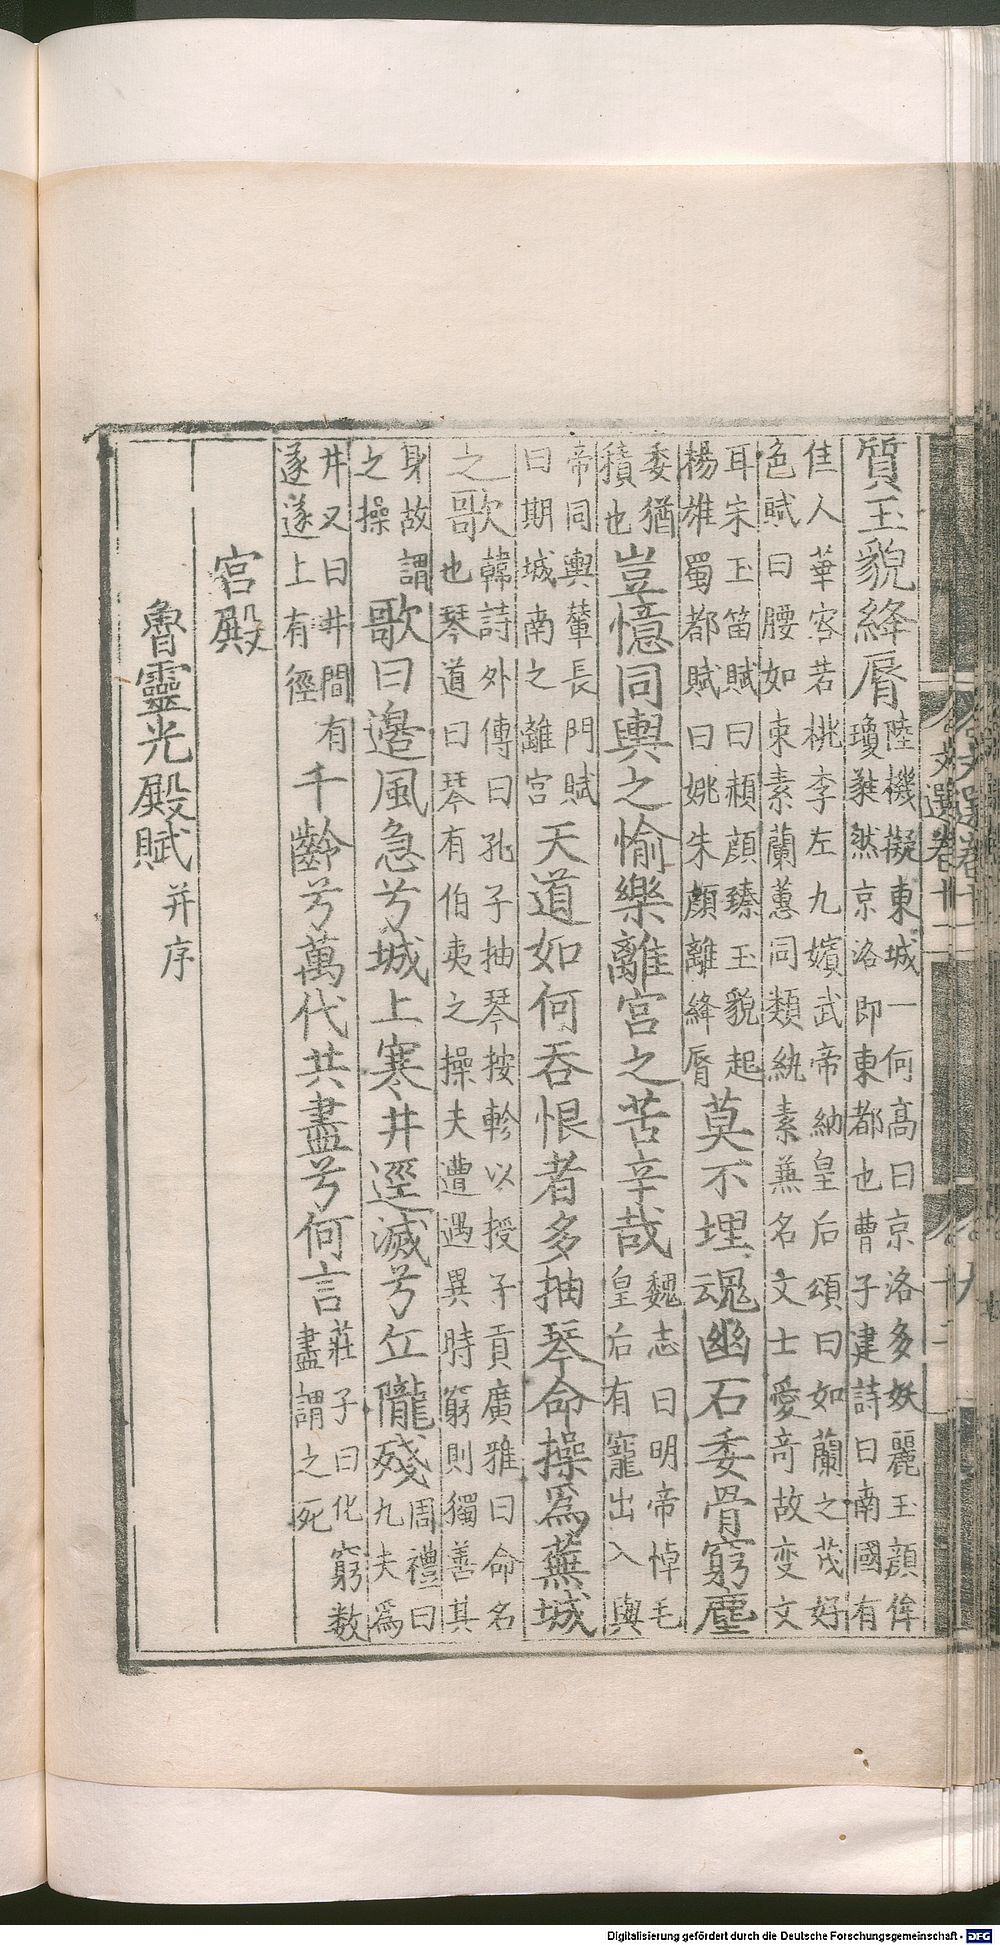 質玉貌絳脣陸機擬東城一何高曰京洛多妖麗玉顔侔瓊蕤然京洛即東都也曹子建詩曰南國有
佳人華容若桃李左九嬪武帝納皇后頌曰如蘭之茂好色賦曰腰如束素蘭蕙同類紈素蕪名文士愛竒故变文
耳宋玉笛賦曰頳顔臻玉貌起楊雄蜀都賦曰姚朱顔離絳脣莫不埋魂幽石委骨窮塵
委猶積也豈憶同輿之愉樂離宮之苦辛哉魏志曰明帝悼毛皇后有寵出入與
帝同輿輦長門賦曰期城南之離宮天道如何吞恨者多抽琴命操爲蕪城
之歌韓詩外傳曰孔子抽琴按軫以授子貢廣雅曰命名也琴道曰琴有伯夷之操夫遭遇異時窮則獨善其
身故謂之操歌曰邉風急兮城上寒井逕滅兮丘隴殘周禮曰九夫爲
井又曰井間有遂遂上有徑千齡兮萬代共盡兮何言莊子曰化窮数盡謂之死
宮殿
魯靈光殿賦并序
文選卷十一
十二
Digitalisierung gefördert durch die Deutsche Forschungsgemeinschaft - DFG